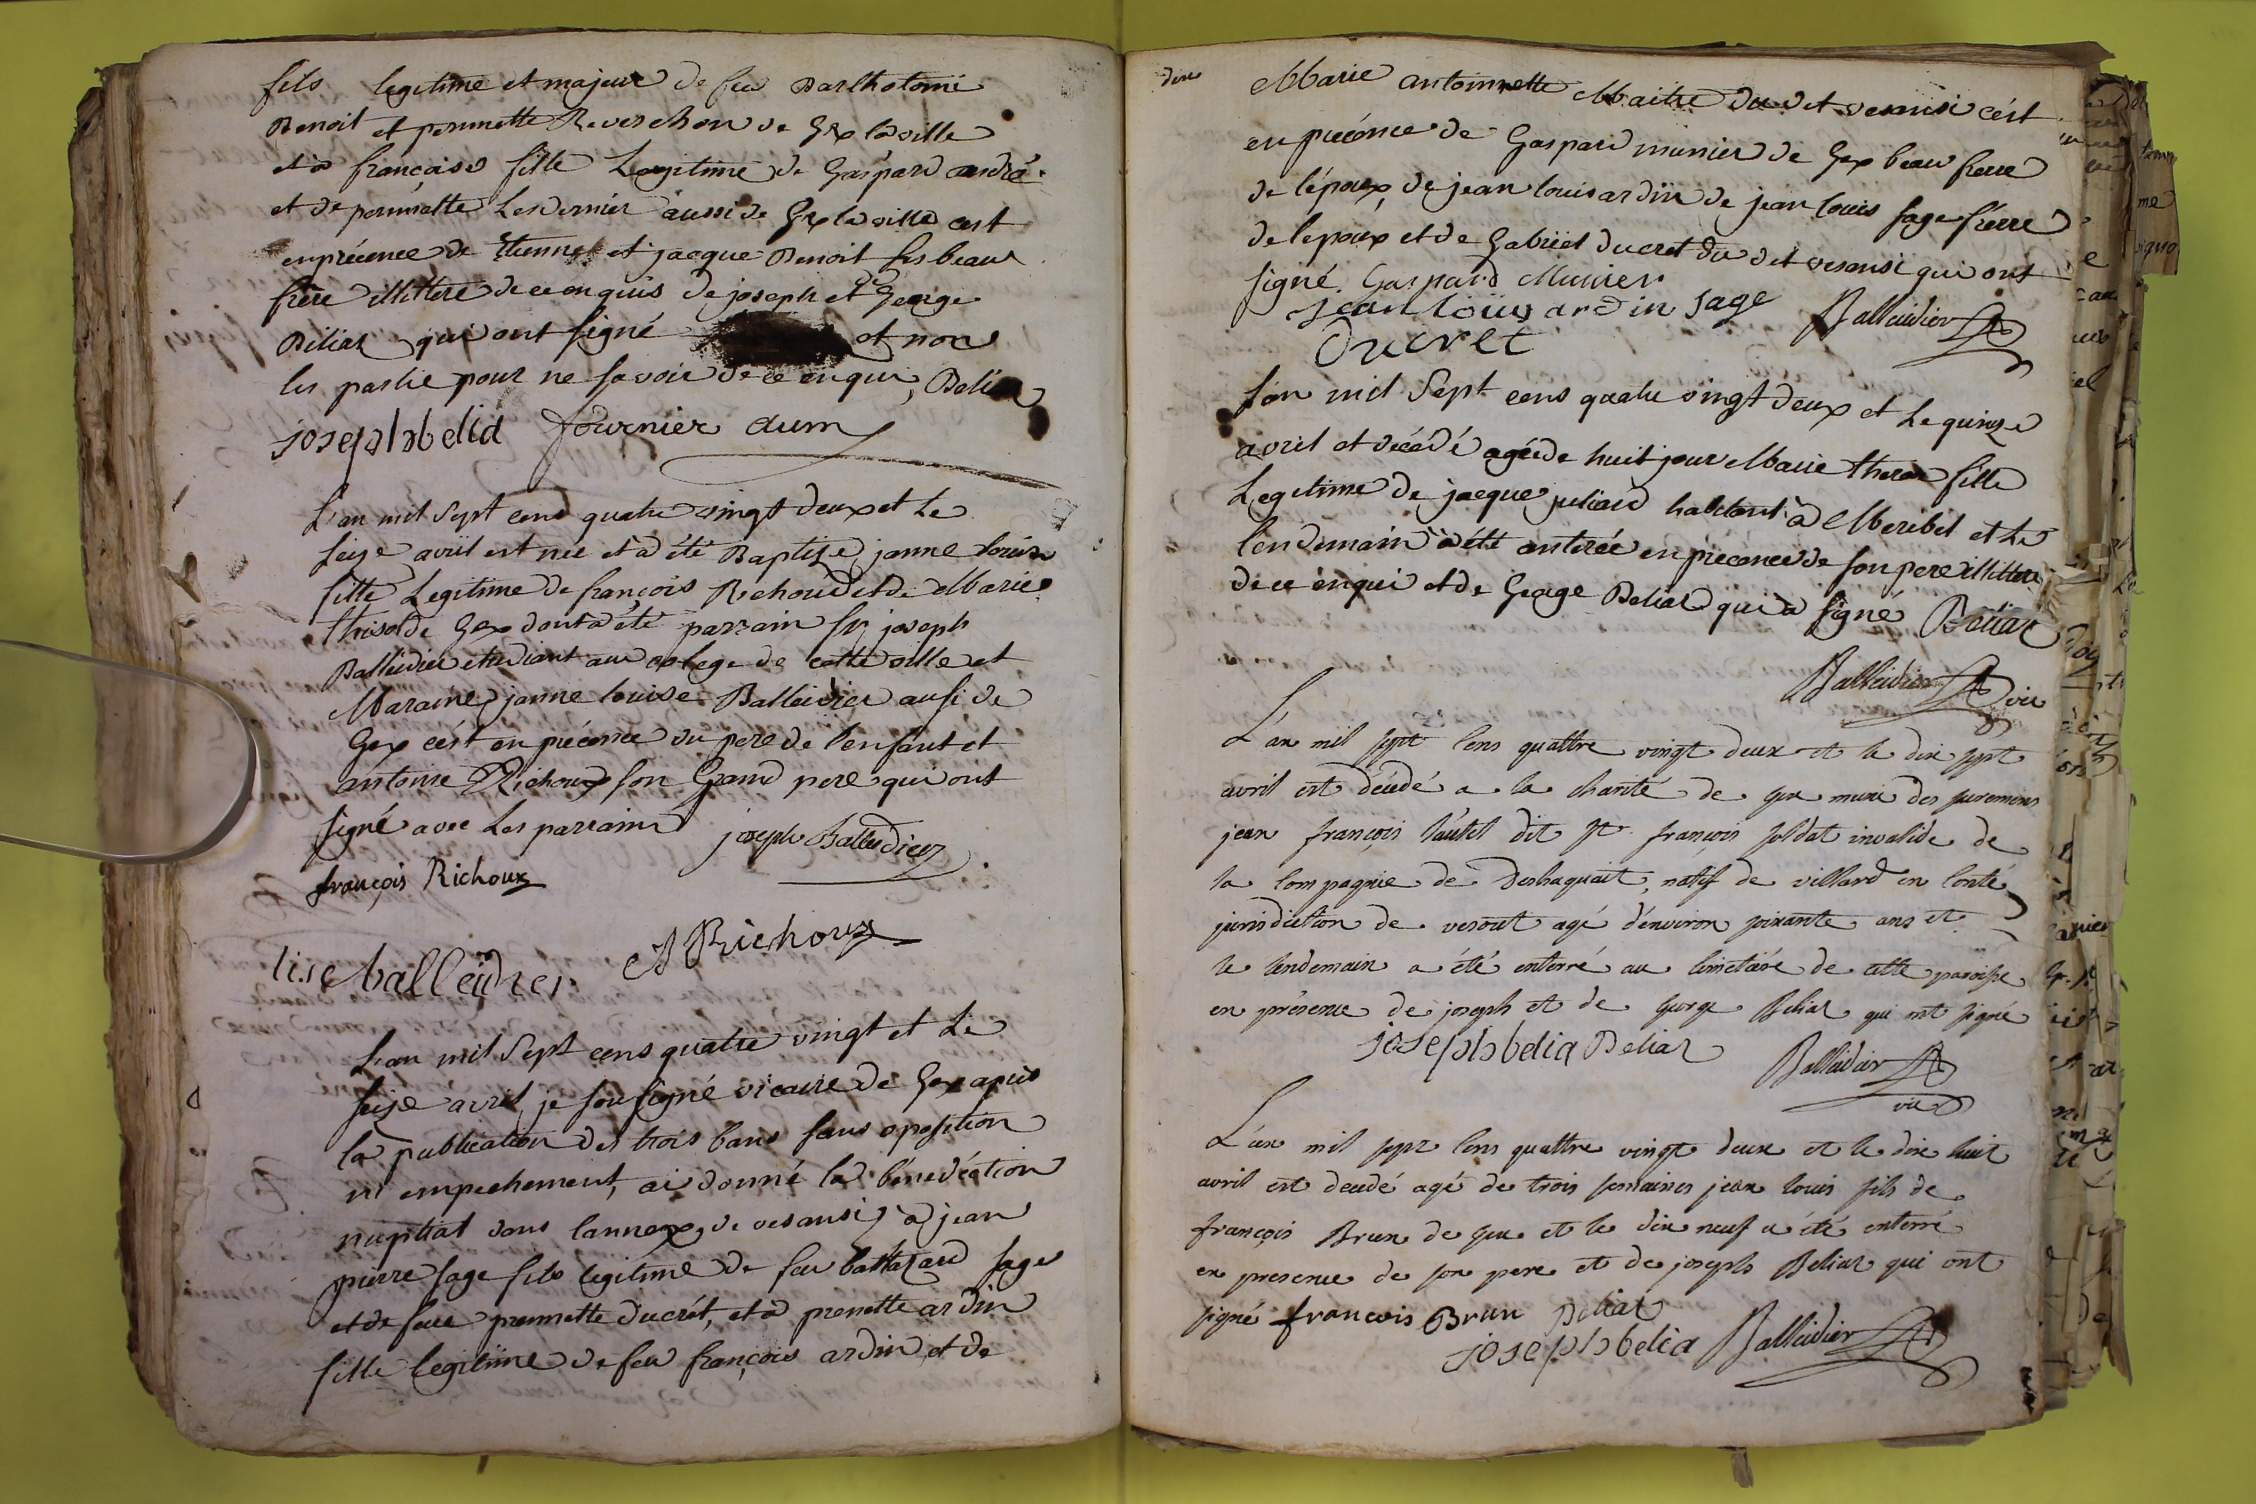 fils legitime et majeur de feu Barlhotomé
Benoit et pernnette Reverchon de Gex la ville
et à françoise fille Legitime de Gaspard andré
et de pernnette Lesdernier aussi de Gex la ville cest
en précence de Etienne et jacque Benoit ses beau
frere illittere de ce enquis de joseph et de George
Béliaz qui ont signé et non
les partie pour ne savoir de ce enqui, Beliaz
joseph belia fournier aum
L'an mil Sept cens quatre vingt deux et le
seize avril est née et à été Baptizé janne louise
fille Legitime de françois Rehoud et de Marie
thisot de Gex dont à été parrain sr joseph
Balleidier etudiant au colege de cette ville et
Maraine janne louise Balleidier ausi de
Gex cést en précence du pere de l'enfant et
antoine Richoux son Grand pere qui ont
signé avec les parrain joseph Balleidier
françois Richoux
lise balleidier A Richoux
L'an mil Sept cens quatre vingt et Le
seize avril, je sousigné vicaire de Gex apres
la publication des trois bans sans oposition
ni empechement, ai donné la bénédiction
nuptial dans lannexe de vesansi, à jean
pierre sage fils legitime de feu baltazard sage
et de feue prennette Ducrét, et à prenette ardin
fille legitime de feu françois ardin et de
Marie antoinnette Maitre du dit vesansi cést
en précence de Gaspard munier de Gex beau frere
de lépoux, de jean louis ardin de jean louis sage frere
de lepoux et de Gabriel ducret du dit vesansi qui ont
signé. Gaspard Munier
jean loüis ardin sage Balleidier
Ducret
L'an mil Sept cens quatre vingt deux et Le quinze
avril et décédé agée de huit jour Marie therese fille
Legitime de jacque juliard habitant à Meribel et le
lendemain à été anterée en précence de son pere illittere
de ce enqui et de George Beliaz qui à signé Beliaz
Balleidier vic
L'an mil sept cens quattre vingt deux et le dix sept
avril est décédé a la charité de gex muni des sacremens
jean françois lautel dit St françois soldat invalide de
la compagnie de Deshaquait, natif de villard en conté
jurisdiction de vesout agé d'environ soixante ans et
le lendemain a été enterré au cimetiere de cette paroisse
en présence de joseph et de george Beliaz qui ont signé
joseph belia Beliaz Balleidier
vic
L'an mil sept cens quattre vingt deux et le dix huit
avril est decedé agé de trois semaines jean louis fils de
françois Brun de gex et le dix neuf a été enterré
en presence de son pere et de joseph Beliaz qui ont
signé francois Brun Beliaz
joseph belia Balleidier